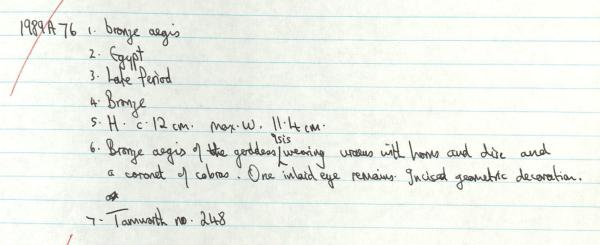 1989A76 1. Bronze aegis
2. Egypt
3. Late Period
4. Bronze
5. H. c. 12 cm. max. W. 11.4 cm.
6. Bronze aegis of the goddess Isis wearing uraeus with horns and disc and
a coronet of cobras. One inlaid eye remains. Incised geometric decoration.
7. Tamworth no. 248